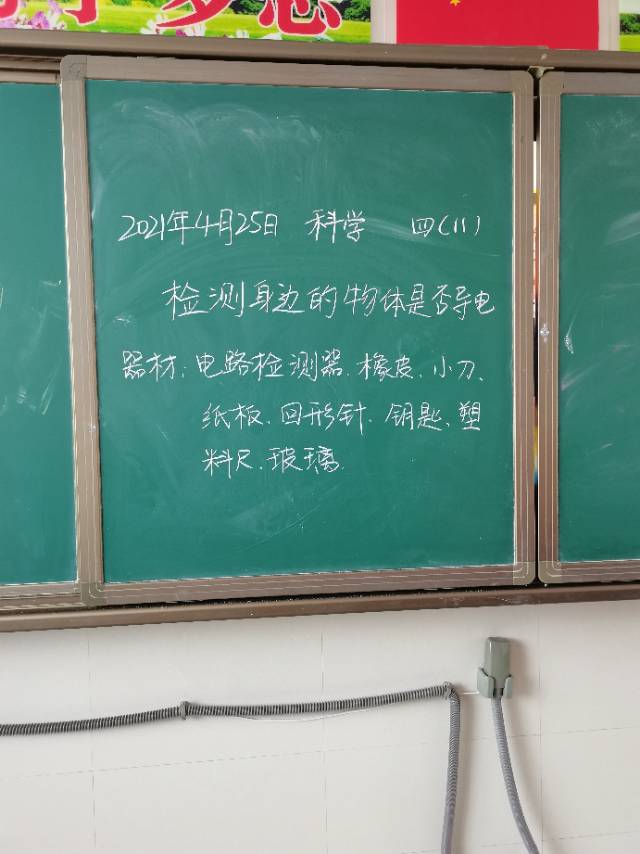 2021年4月25日 科学 四(11)
检测身边的物体是否导电
器材:电路检测器、橡皮、小刀、
纸板、回形针、钥匙、塑
料尺、玻璃.